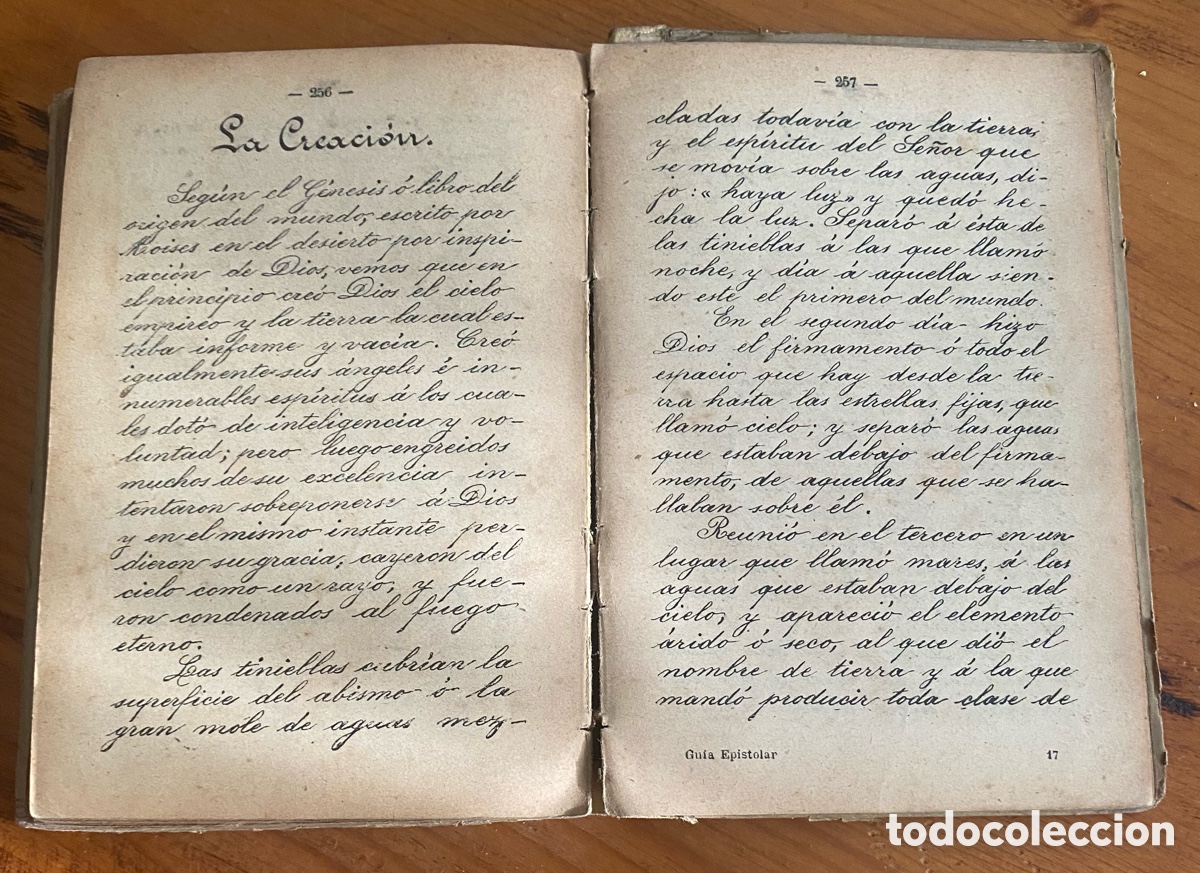 — 256 —
La Creación.
Según el Génesis ó libro del
origen del mundo, escrito por
Moises en el desierto por inspi-
ración de Dios, vemos que en
el principio creó Dios el cielo
empireo y la tierra la cual es-
taba informe y vacía. Creó
igualmente sus ángeles é in-
numerables espíritus á los cua-
les dotó de inteligencia y vo-
luntad; pero luego engreidos
muchos de su excelencia in-
tentaron sobreponerse á Dios
y en el mismo instante per-
dieron su gracia, cayeron del
cielo como un rayo, y fue-
ron condenados al fuego
eterno.
Las tinieblas cubrían la
superficie del abismo ó la
gran mole de aguas mez-
— 257 —
cladas todavía con la tierra,
y el espíritu del Señor que
se movía sobre las aguas, di-
jo: «haya luz» y quedó he-
cha la luz. Separó á ésta de
las tinieblas á las que llamó
noche, y día á aquella sien-
do este el primero del mundo.
En el segundo día hizo
Dios el firmamento ó todo el
espacio que hay desde la tie-
rra hasta las estrellas fijas, que
llamó cielo; y separó las aguas
que estaban debajo del firma-
mento, de aquellas que se ha-
llaban sobre él.
Reunió en el tercero en un
lugar que llamó mares, á las
aguas que estaban debajo del
cielo, y apareció el elemento
árido ó seco, al que dió el
nombre de tierra y á la que
mandó producir toda clase de
Guía Epistolar 17
todocoleccion